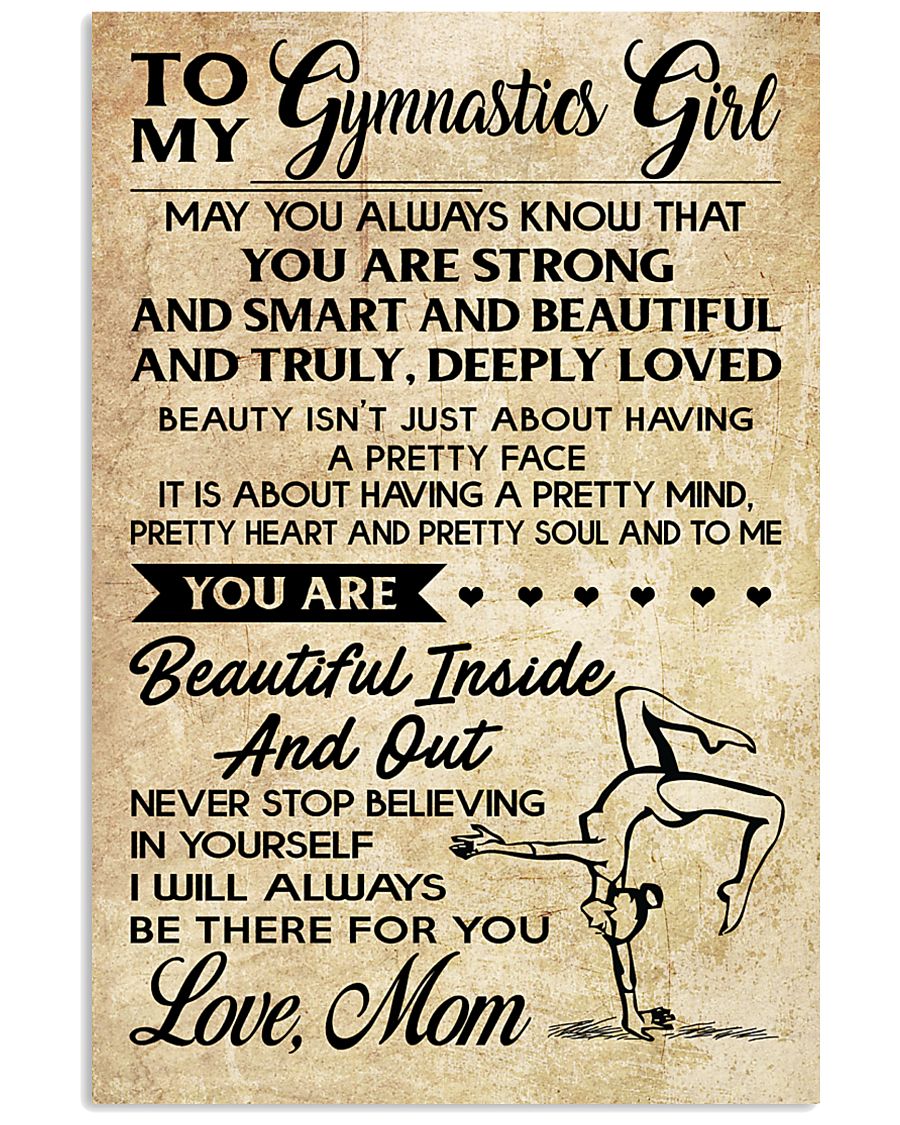 TO MY Gymnastics Girl
MAY YOU ALWAYS KNOW THAT
YOU ARE STRONG
AND SMART AND BEAUTIFUL
AND TRULY, DEEPLY LOVED
BEAUTY ISN'T JUST ABOUT HAVING
A PRETTY FACE
IT IS ABOUT HAVING A PRETTY MIND,
PRETTY HEART AND PRETTY SOUL AND TO ME
YOU ARE
Beautiful Inside
And Out
NEVER STOP BELIEVING
IN YOURSELF
I WILL ALWAYS
BE THERE FOR YOU
Love, Mom